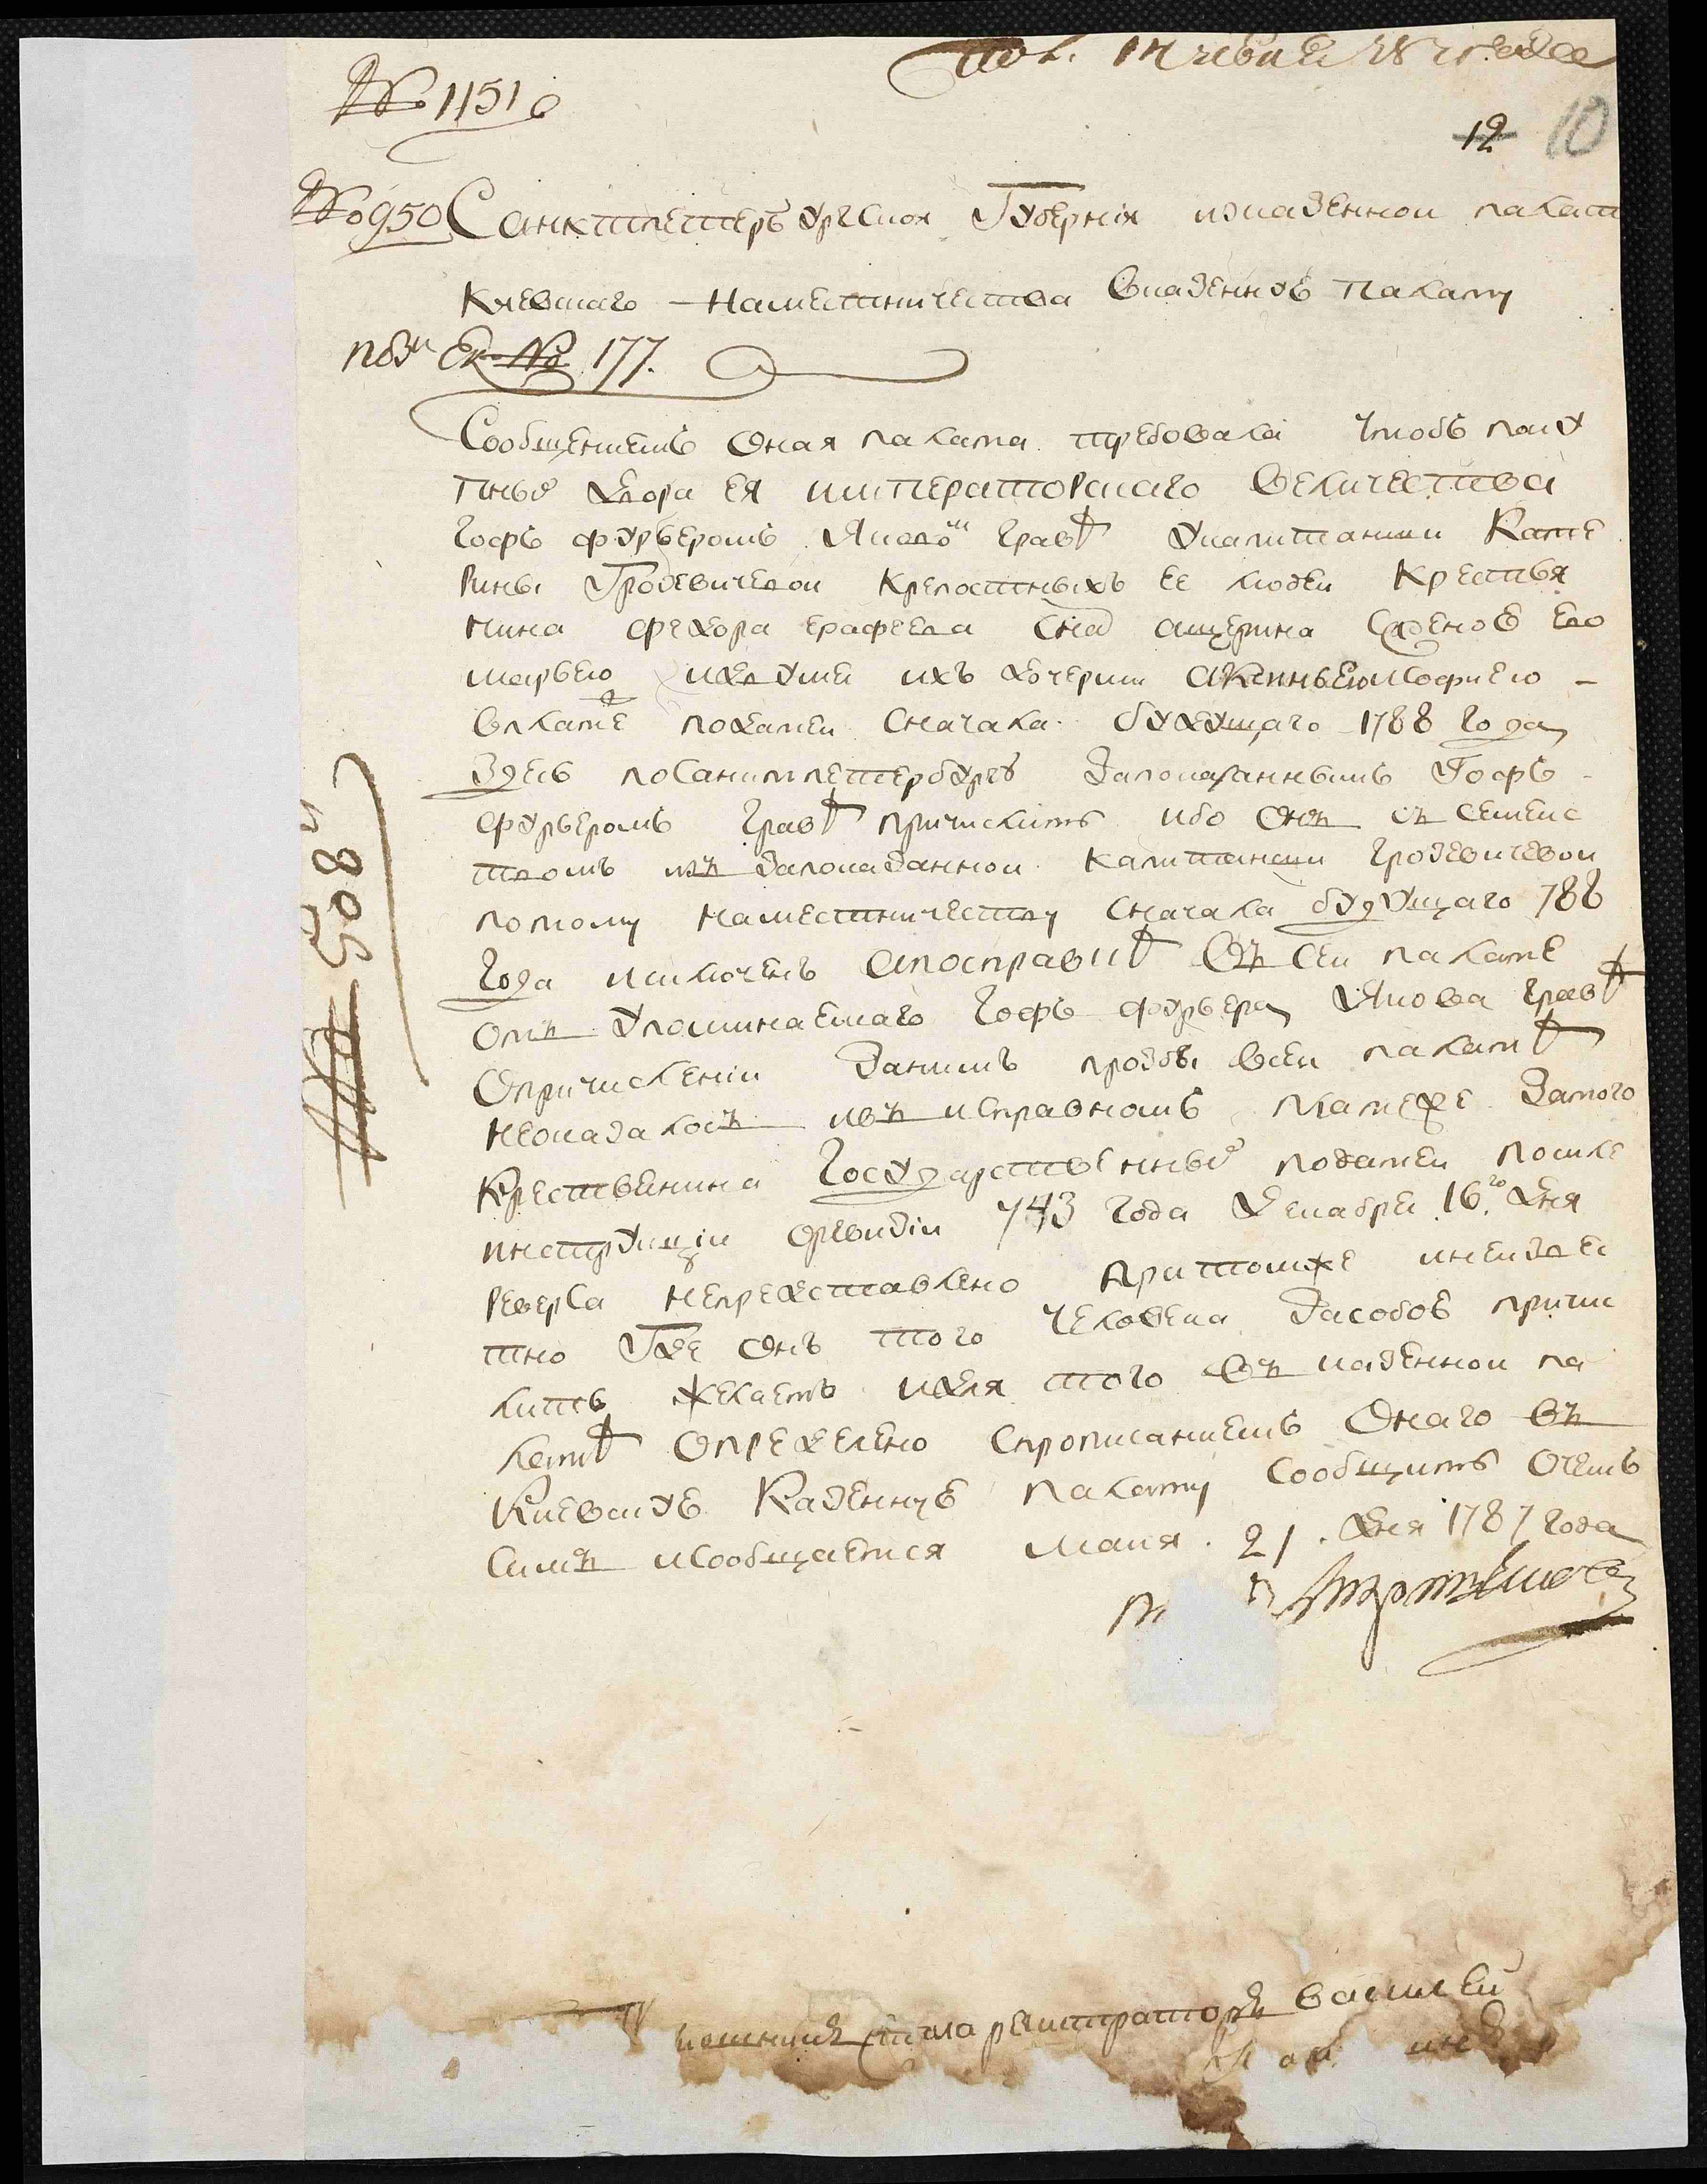 № 1151
12 10
№ 950 Санктпетербургская Губерния исказенной палаты
Киевскаго Наместничества Вказенную палату
177.
Сообщениемъ Оная палата требовала чтобъ поку
пные двора ея императорскаго величества
Гофъ фурьеромъ Яковом Гравѣ укапитанши Кате
рины Гродевичевой Крепостныхъ ее людей Крестья
нина федора ерафеева сна ащерина Сженою ево
марьею идвумя ихъ дочерми Аксиньею исофиею
вплатеже податей сначала будущаго 1788 года
здесь поСанктпетербургу Запоказаннымъ Гофъ
фурьеромъ Гравѣ причислить ибо Онъ съ семейс
твомъ изъ запоказанной Капитанши Гродевичевой
потому наместничеству Сначала будущаго 788
года исключенъ Апосправкѣ Въ Сей палате
отъ упоминаемаго Гофъ фурьера Якова Гравѣ
Опричислении Занимъ прозбы Всей палатѣ
неоказалось ивъ исправномъ платеже Затого
Крестьянина Государственных податей посиле
инструкции Оревизии 743 года декабря 16го дня
реверса непредставлено притомже инеизвес
тно Где Онъ того человека Засобою причи
слить желаетъ идля того Въ казенной па
латѣ Определено Спрописаниемъ Онаго въ
Киевскую Казенную палату Сообщить Очемъ
Симъ иСообщается маия 21 дня 1787 года
n 805
василей